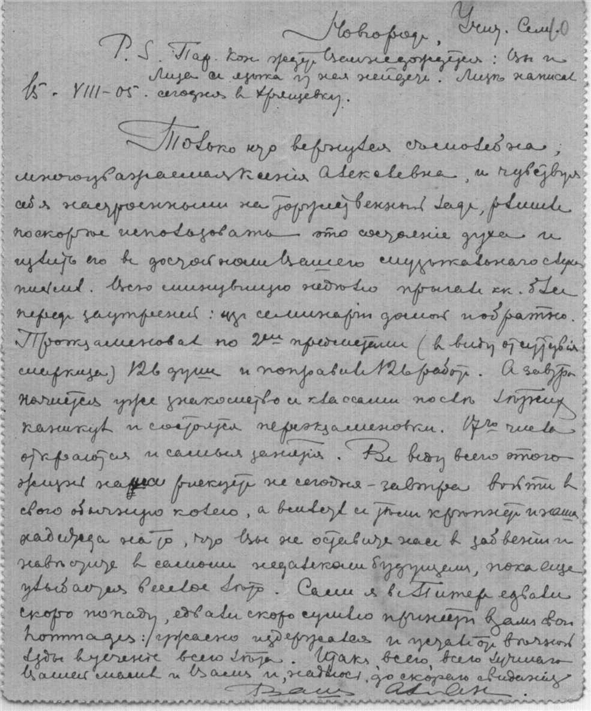 Новгород, Учит. Семр.
P. S. Пар. кон ждут : Вы и
Лица с языка у нея нейдете. Лицю написал
15 - VIII - 05 - сегодня в Хрящевку.
Только что вернулся съ молебна,
многоуважаемая Ксенія Алексѣевна, и чувствуя
себя настроеннымъ на торжественный ладъ, рѣшилъ
поскорѣе использовать это состояніе духа и
излить его въ достойномъ Вашего музыкальнаго
. Всю минувшую недѣлю прыгалъ кк. бѣсъ
передъ заутреней: изъ семинаріи домой и обратно.
Проэкзаменовалъ по 2мъ предметамъ (въ виду отсутствія
) 126 душъ и поправилъ 126 работъ. А завтра
начнется уже знакомство съ классами послѣ лѣтнихъ
каникулъ и состоятся переэкзаменовки. 17го числа
откроются и самыя занятія. Въ виду всего этого
жизнь наша рискуетъ не сегодня-завтра войти въ
свою обычную колею, а вмѣстѣ съ тѣмъ крѣпнетъ и наша
надежда на то, что Вы не оставите насъ въ забвеніи и
навѣстите въ самомъ недалекомъ будущемъ, пока еще
улыбается веселое лѣто. Самъ я въ Питеръ едвали
скоро попаду, едвали скоро сумѣю принести Вамъ свои
hommages: ужасно издержался и усталъ отъ вѣчной
ѣзды въ теченіе всего лѣта. Итакъ, всего, всего лучшаго
Вашей мамѣ и Вамъ и, надѣюсь, до скораго свиданія
Вашъ